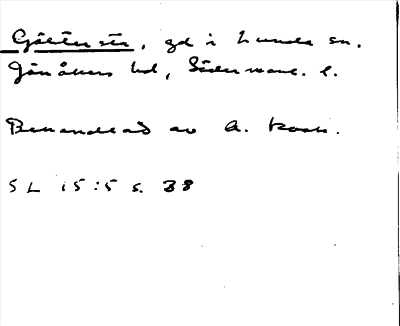 Gälltersta, gd i Lunda sn.
Jönåkers hd, Söderman. l.
Behandlad av A. Kock.
SL 15:5 s. 38